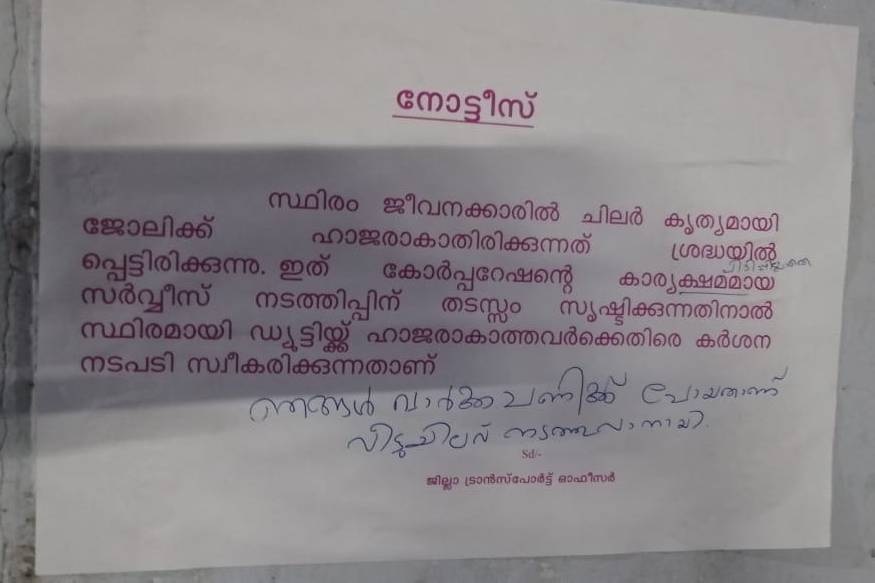 നോട്ടീസ്
സ്ഥിരം ജീവനക്കാരിൽ ചിലർ കൃത്യമായി
ജോലിക്ക് ഹാജരാകാതിരിക്കുന്നത് ശ്രദ്ധയിൽ
പ്പെട്ടിരിക്കുന്നു. ഇത് കോർപ്പറേഷന്റെ കാര്യക്ഷമമായ
സർവ്വീസ് നടത്തിപ്പിന് തടസ്സം സൃഷ്ടിക്കുന്നതിനാൽ
സ്ഥിരമായി ഡ്യൂട്ടിയ്ക്ക് ഹാജരാകാത്തവർക്കെതിരെ കർശന
നടപടി സ്വീകരിക്കുന്നതാണ്
ഞങ്ങൾ വാർക്കപണിക്ക് പോയതാണ്
വീട്ടുചിലവ് നടത്തുവാനായി.
Sd/-
ജില്ലാ ട്രാൻസ്പോർട്ട് ഓഫീസർ